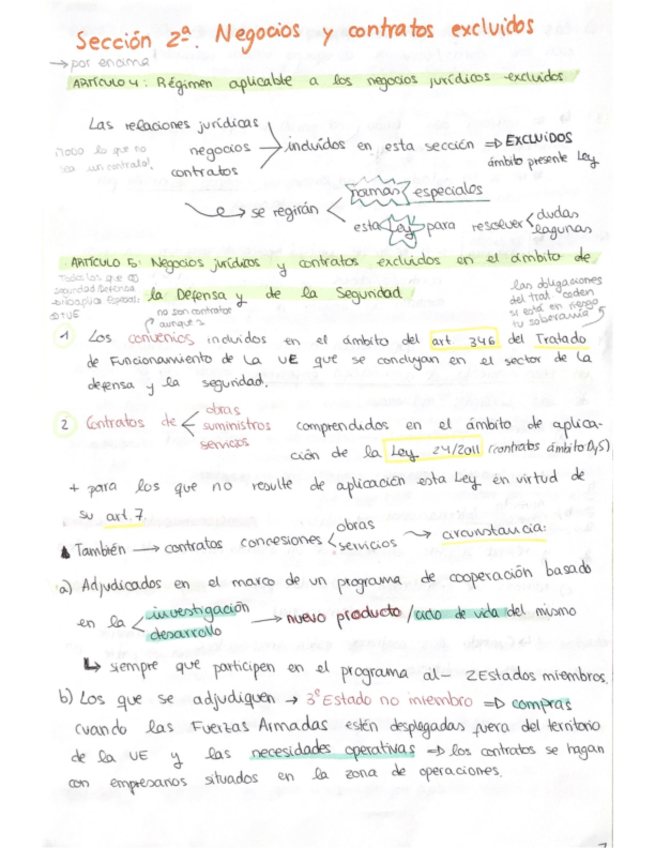 Sección 2ª. Negocios y contratos excluidos
→ por encima
ARTÍCULO 4: Régimen aplicable a los negocios jurídicos excluidos
Las relaciones jurídicas
negocios
contratos
¡Todo lo que no
sea un contrato!
incluidos en esta sección ⇒ EXCLUIDOS
ámbito presente Ley
→ se regirán
normas especiales
esta Ley para resolver
dudas
lagunas
ARTÍCULO 5: Negocios jurídicos y contratos excluidos en el ámbito de
la Defensa y de la Seguridad
Todos los que
seguridad Defensa
TUE
no son contratos
aunque
las obligaciones
del trat. ceden
si está en riesgo
tu soberanía
1 Los convenios incluidos en el ámbito del art 346 del Tratado
de Funcionamiento de la UE que se concluyan en el sector de la
defensa y la seguridad.
2 Contratos de
obras
suministros
servicios
comprendidos en el ámbito de aplica-
ción de la Ley 24/2011 (contratos ámbito D y S)
+ para los que no resulte de aplicación esta Ley en virtud de
su art. 7
También → contratos concesiones
obras
servicios
→ circunstancia:
a) Adjudicados en el marco de un programa de cooperación basado
en la
investigación
desarrollo
→ nuevo producto / ciclo de vida del mismo
↳ siempre que participen en el programa al- 2 Estados miembros.
b) Los que se adjudiquen → 3º Estado no miembro ⇒ compras
cuando las Fuerzas Armadas estén desplegadas fuera del territorio
de la UE y las necesidades operativas ⇒ los contratos se hagan
con empresarios situados en la zona de operaciones.